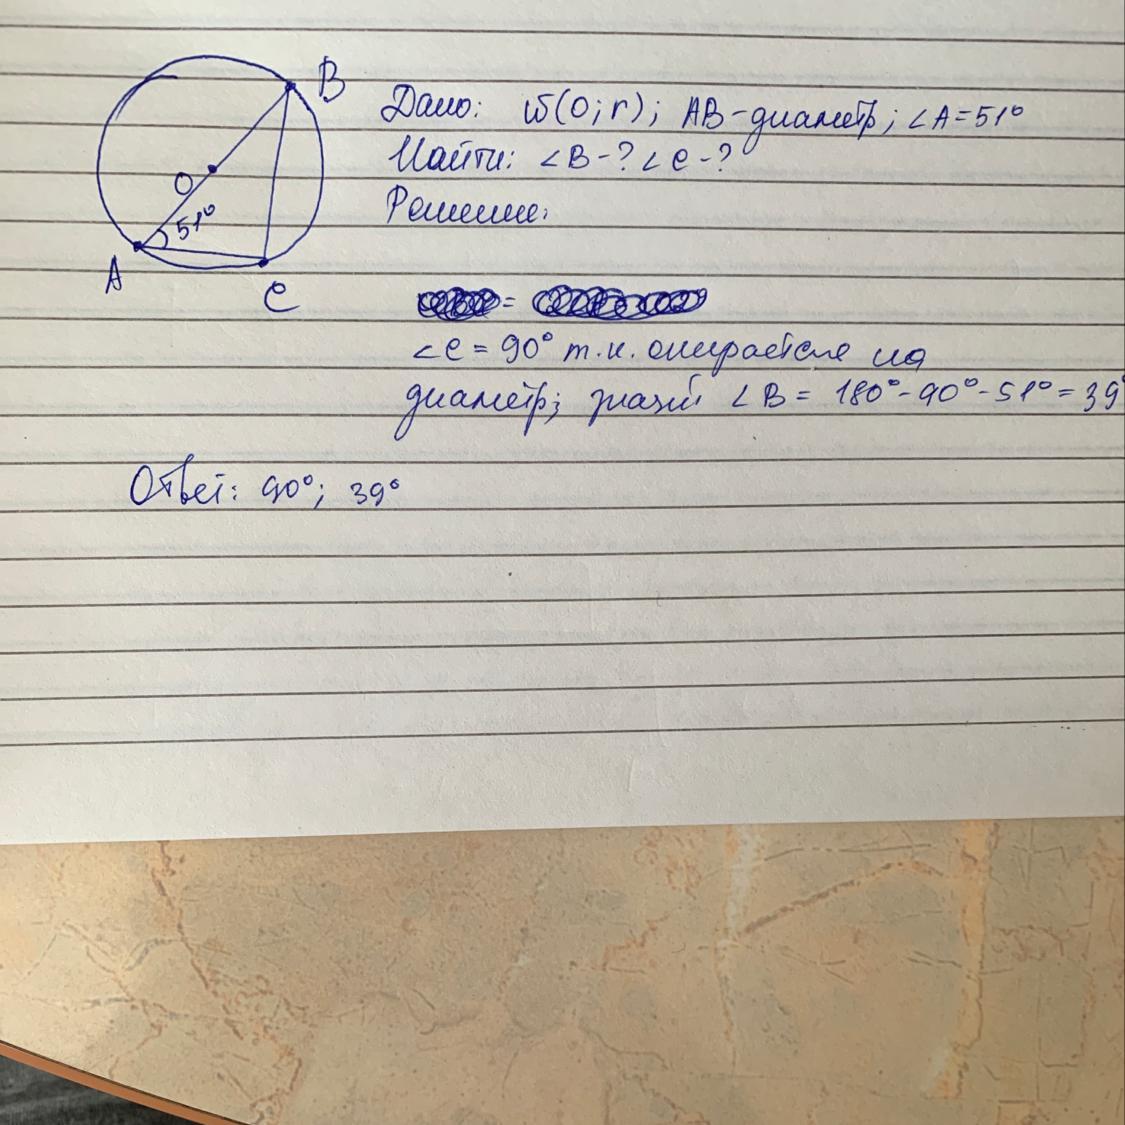 B
Дано: ω(O;r); AB-диаметр; ∠A=51°
Найти: ∠B-? ∠C-?
O
51°
Решение:
A
C
=
∠C = 90° т.к. опирается на
диаметр; ∠B = 180°-90°-51°=39°
Ответ: 90°; 39°